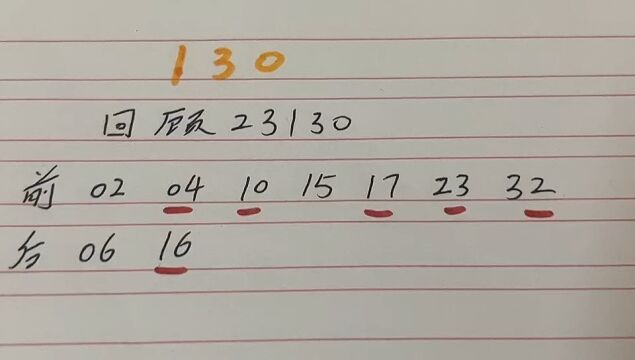 130
回顾23130
前 02 04 10 15 17 23 32
后 06 16